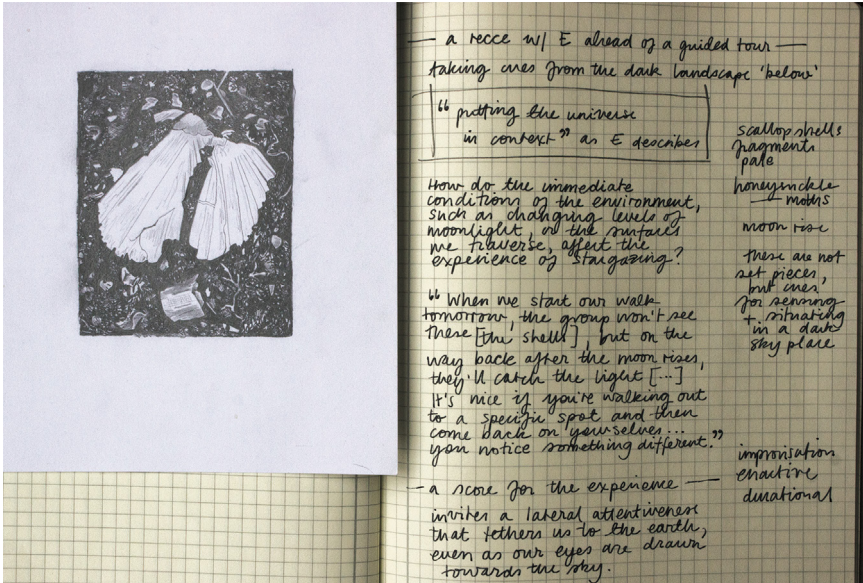 — a recce w/ E ahead of a guided tour —
taking cues from the dark landscape 'below'
"putting the universe
in context" as E describes
How do the immediate
conditions of the environment,
such as changing levels of
moonlight, or the surfaces
we traverse, affect the
experience of stargazing?
"When we start our walk
tomorrow, the group won't see
these [the shells], but on the
way back after the moon rises,
they'll catch the light [...]
It's nice if you're walking out
to a specific spot and then
come back on yourselves...
you notice something different."
— a score for the experience —
invites a lateral attentiveness
that tethers us to the earth,
even as our eyes are drawn
towards the sky.
scallop shells
fragments
pale
honeysuckle
— moths
moon rise
these are not
set pieces,
but cues,
for sensing
+ situating
in a dark
sky place
improvisation
enactive
durational